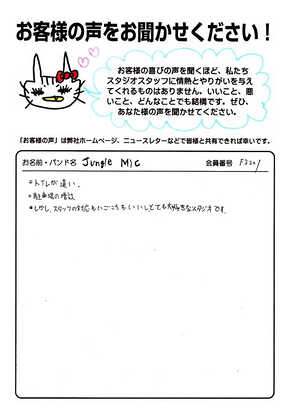 お客様の声をお聞かせください！
お客様の喜びの声を聞くほど、私たち
スタジオスタッフに情熱とやりがいを与え
てくれるものはありません。いいこと、悪
いこと、どんなことでも結構です。ぜひ、
あなた様の声を聞かせてください。
「お客様の声」は弊社ホームページ、ニュースレターなどで皆様と共有できれば幸いです。
お名前・バンド名 Jungle Mic 会員番号
*トイレが遠い。
*駐車場の増設
*しかし、スタッフの対応もいごこちもいいしとても大好きなスタジオです。